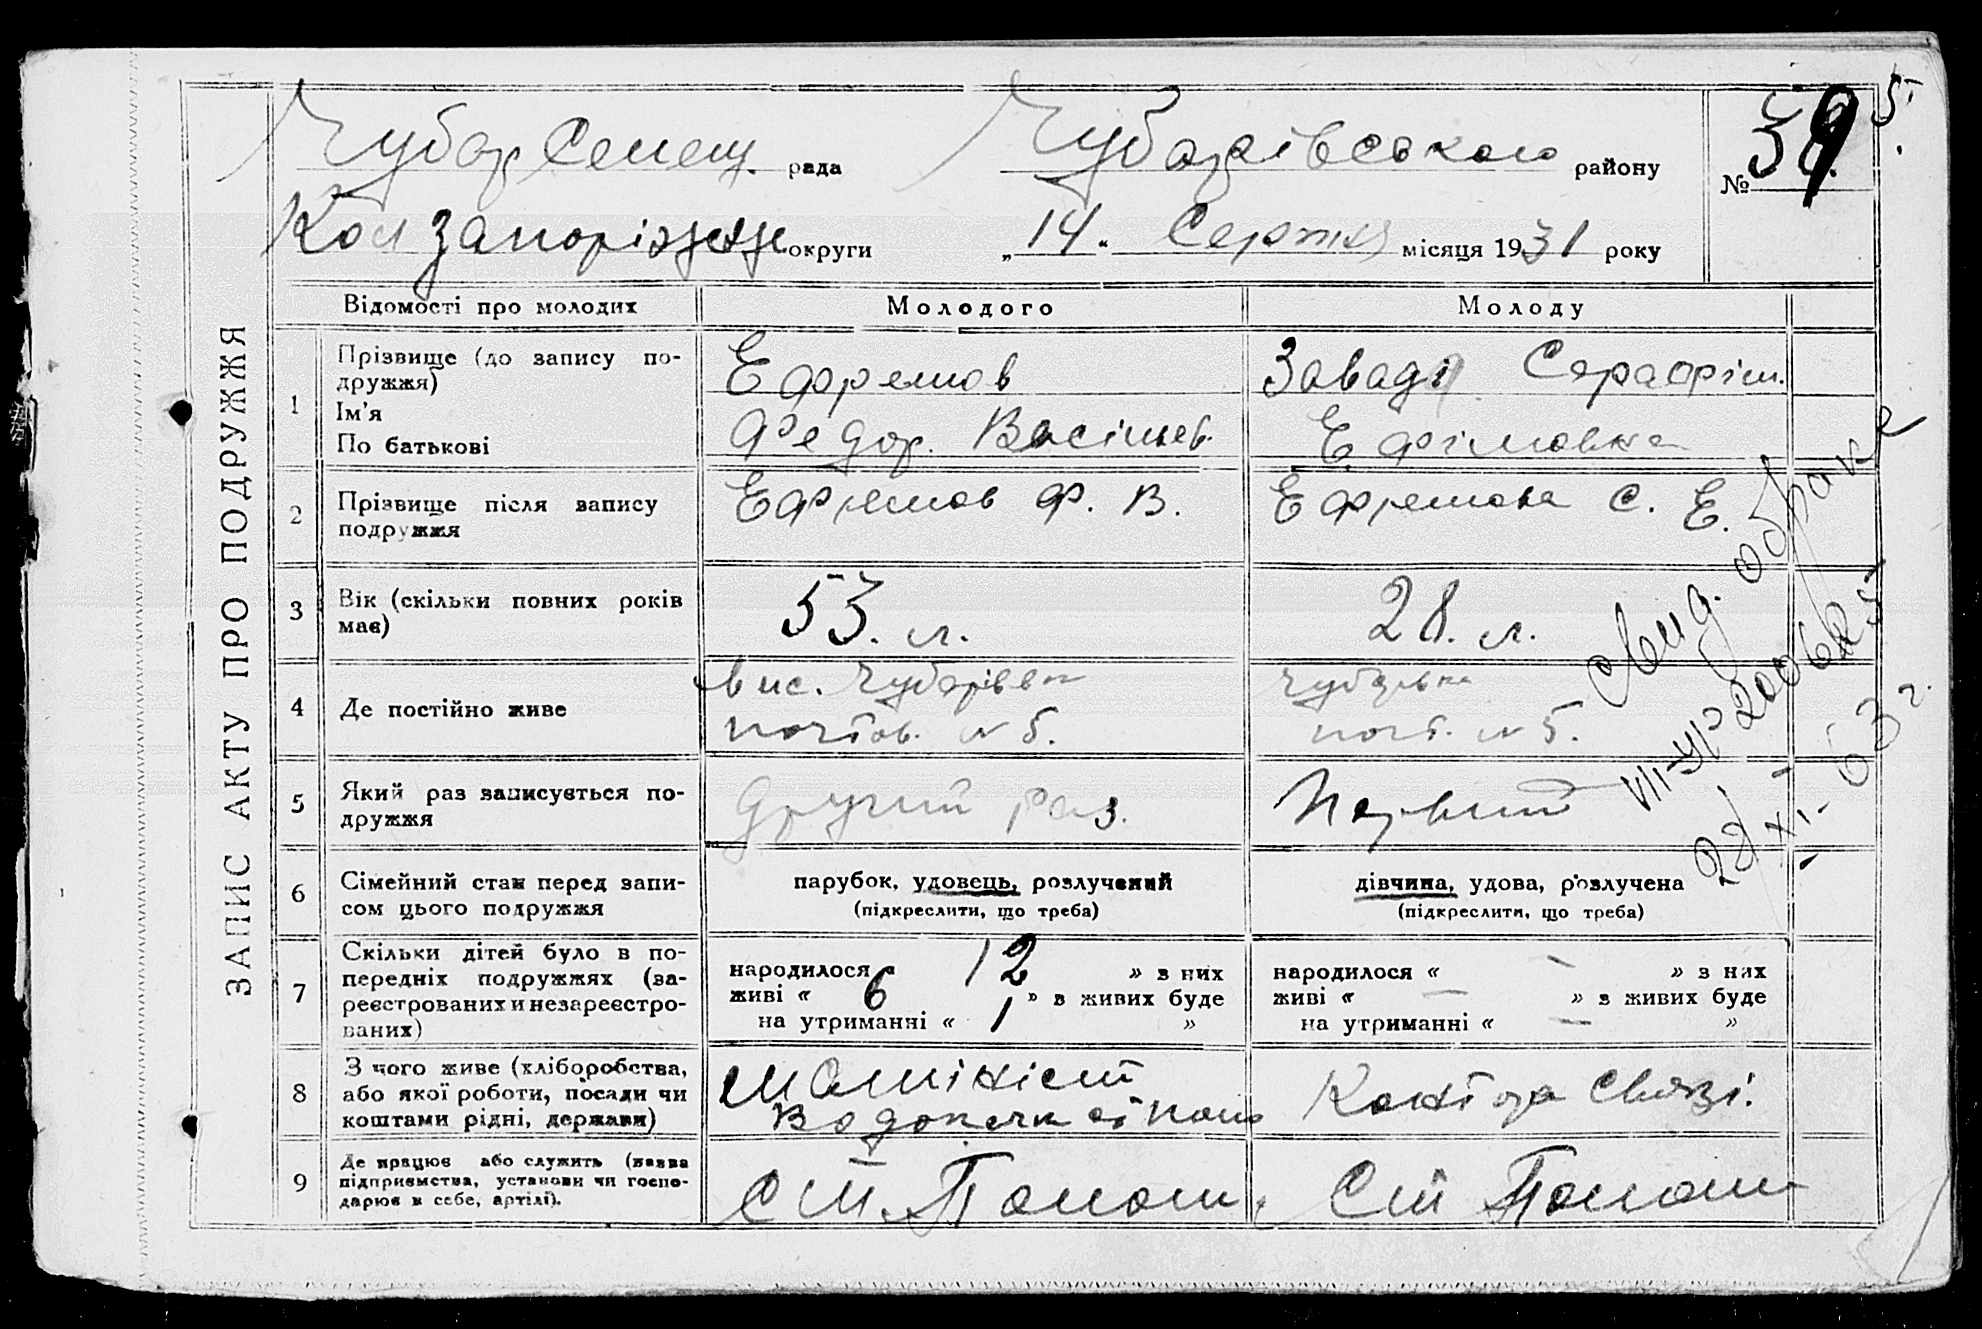 ЗАПИС АКТУ ПРО ПОДРУЖЖЯ
Чубар Селещ. рада Чубарівського району № 39 5.
Кол Запоріжжя округи „14" Серпня місяця 1931 року
Відомості про молодих Молодого Молоду
1 Прізвище (до запису по-
дружжя)
Ім'я
По батькові
Ефремов
Федор. Васільев.
Завади Серафім.
Ефімовна
2 Прізвище після запису
подружжя
Ефремов Ф. В.
Ефремова С. Е.
3 Вік (скільки повних років
має)
53. л.
28. л.
4 Де постійно живе
вис. Чубарівка
почтов. № 5.
Чубарівка
почт. № 5.
5 Який раз записується по-
дружжя
другий раз.
Первий
6 Сімейний стан перед запи-
сом цього подружжя
парубок, удовець, розлучений
(підкреслити, що треба)
дівчина, удова, розлучена
(підкреслити, що треба)
7 Скільки дітей було в по-
передніх подружжях (за-
реєстрованих и незареєстро-
ваних)
народилося « 12 » з них
живі « 6 » з живих буде
на утриманні « 1 »
народилося « — » з них
живі « — » з живих буде
на утриманні « — »
8 З чого живе (хліборобства,
або якої роботи, посади чи
коштами рідні, держави)
машініст
Контора Связі.
9 Де працює або служить (назва
підприємства, установи чи госпо-
дарює в себе, артілі).
Ст. Пологи.
Ст Пологи
Свид. о браке
VIII-УР
28/XI-63 г.